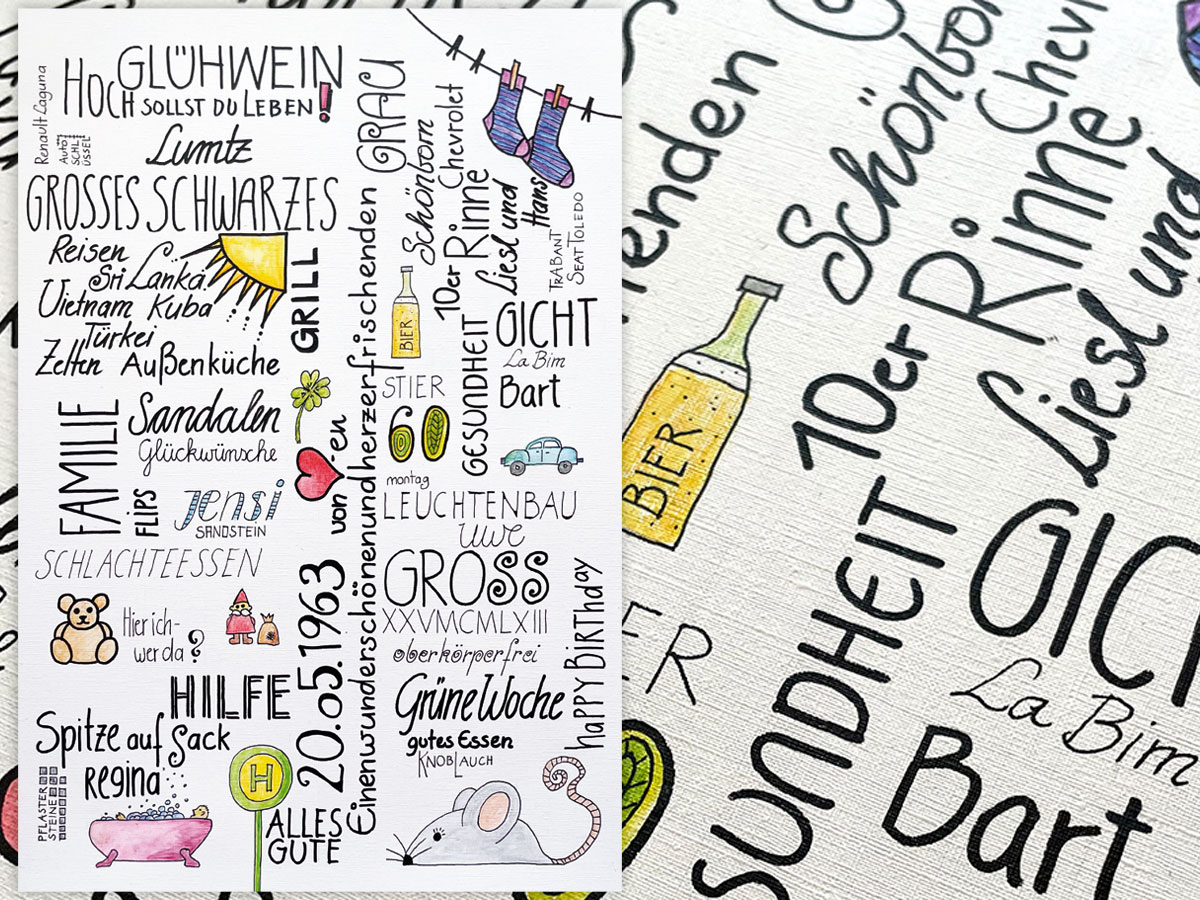 Renault Laguna
HOCH
GLÜHWEIN
SOLLST DU LEBEN!
AUTO
SCHL
ÜSSEL
Lumtz
GROSSES SCHWARZES
Reisen
Sri Lanka
Vietnam Kuba
Türkei
Zelten Außenküche
GRILL
FAMILIE
Sandalen
Glückwünsche
FLiPS
jensi
SANDSTEIN
SCHLACHTEESSEN
Hier ich-
wer da?
HILFE
Spitze auf Sack
Regina
PFLASTER
STEINE
H
ALLES
GUTE
20.05.1963 von -en
Einenwunderschönenundherzerfrischenden
GRAU
Schönborn
Chevrolet
10er Rinne
Liesl und
Hans
TRABANT
SEAT TOLEDO
BIER
GESUNDHEIT
GICHT
La Bim
Bart
STIER
60
montag
LEUCHTENBAU
Uwe
GROSS
XXVMCMLXIII
oberkörperfrei
Grüne Woche
gutes Essen
KNOBLAUCH
happy Birthday
enden
Schönbor
Chevr
10er Rinne
Liesl und
BIER
SUNDHEIT
GICH
La Bim
Bart
ER